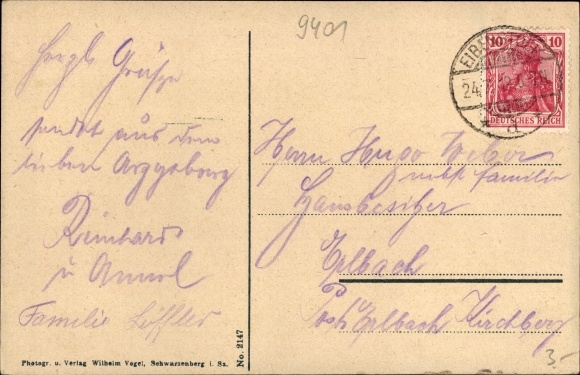 9401
Herzl. Grüsse
sendet aus dem
lieben Arzgebirg
Reinhard
u
Familie Löffler
Photogr. u. Verlag Wilhelm Vogel, Schwarzenberg i. Sa.
No. 2147
10 10
DEUTSCHES REICH
EIBENSTOCK
24.
Herrn Hugo Weber
nebst Familie
Hausbesitzer
Erlbach
Post Erlbach Kirchberg
3.-